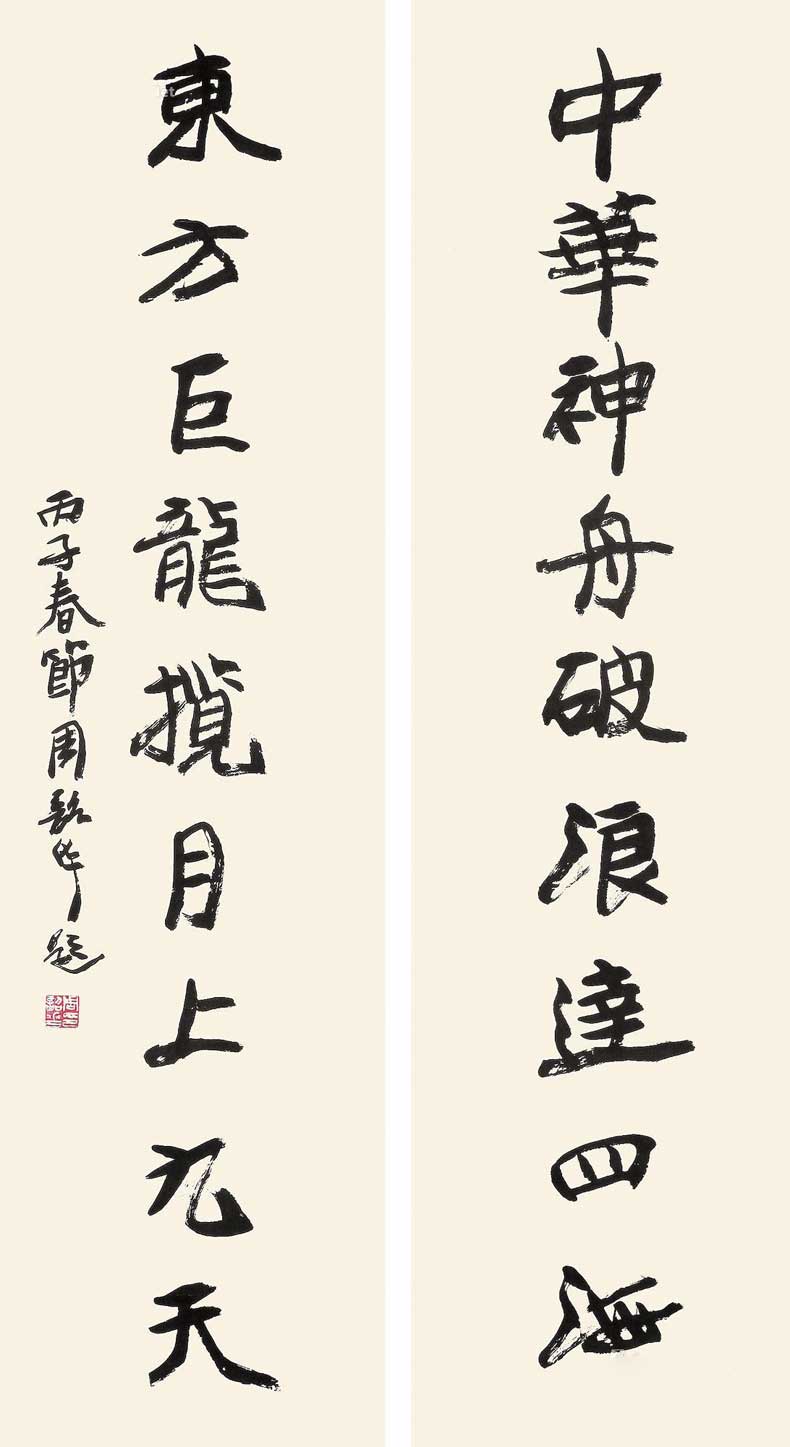 中華神舟破浪達四海
東方巨龍攬月上九天
丙子春節周韶華題